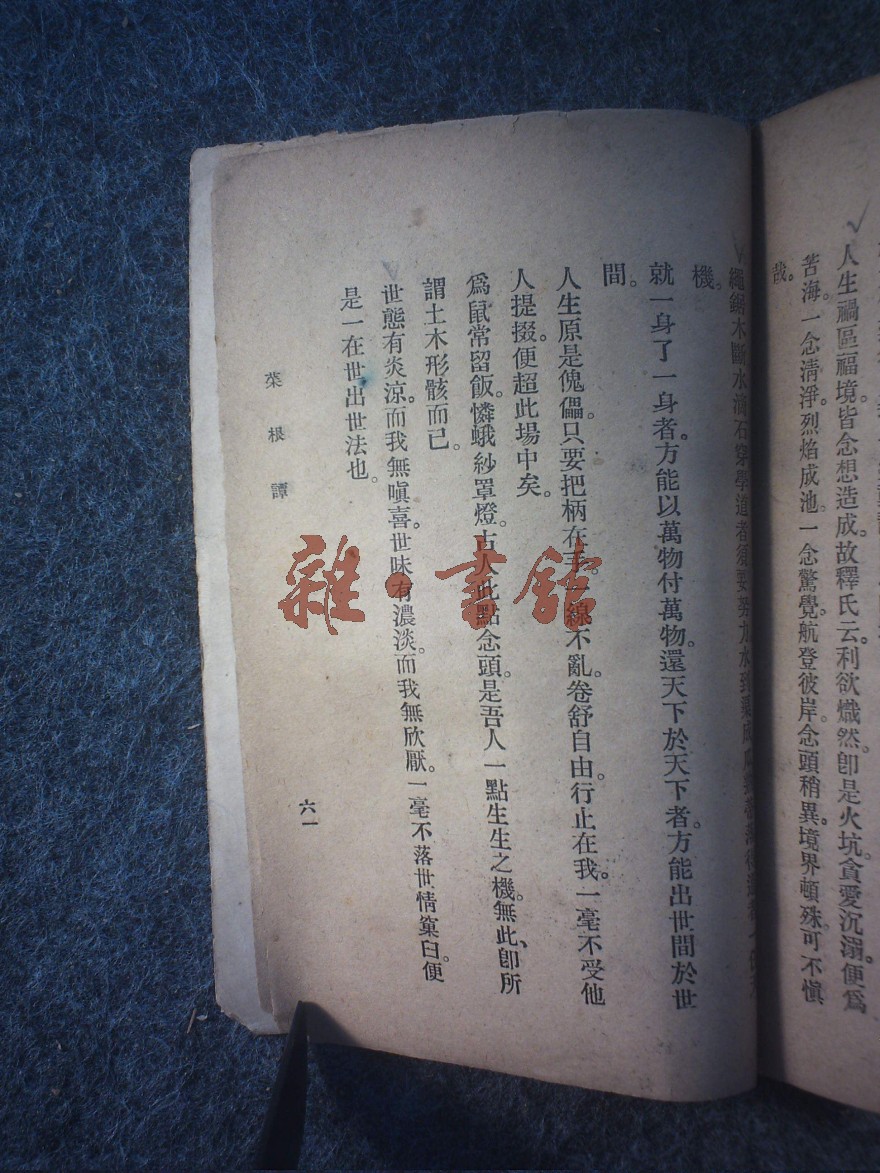 人生禍區福境。皆念想造成。故釋氏云。利欲熾然。卽是火坑。貪愛沉溺。便爲
苦海。一念清淨。烈焰成池。一念驚覺。航登彼岸。念頭稍異。境界頓殊。可不愼
哉。
繩鋸木斷水滴石穿學道者須要
機。
就一身了一身者。方能以萬物付萬物。還天下於天下者。方能出世間於世
間。
人生原是傀儡。只要把柄在手。一線不亂。卷舒自由。行止在我。一毫不受他
人提掇。便超此場中矣。
爲鼠常留飯。憐蛾紗罩燈。古人此點念頭。是吾人一點生生之機。無此、卽所
謂土木形骸而已。
世態有炎涼。而我無嗔喜。世味有濃淡。而我無欣厭。一毫不落世情窠臼。便
是一在世出世法也。
菜根譚
六一
雜·書舘